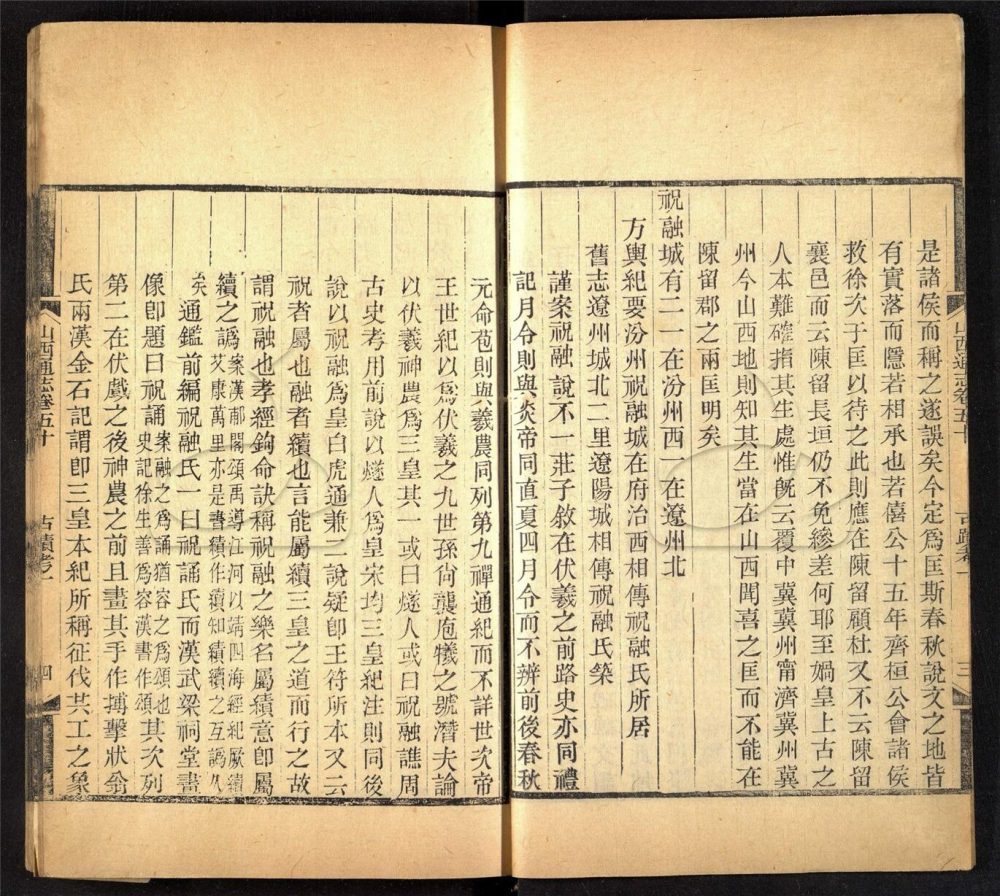 是諸侯而稱之遂誤矣今定爲匡斯春秋說文之地皆
有實落而隱若相承也若僖公十五年齊桓公會諸侯
救徐次于匡以待之此則應在陳留顧杜又不云陳留
襄邑而云陳留長垣仍不免縿差何耶至媧皇上古之
人本難確指其生處惟旣云覆中冀冀州甯濟冀州冀
州今山西地則知其生當在山西聞喜之匡而不能在
陳留郡之兩匡明矣
祝融城有二一在汾州西一在遼州北
方輿紀要汾州祝融城在府治西相傳祝融氏所居
舊志遼州城北二里遼陽城相傳祝融氏築
謹案祝融說不一莊子敘在伏羲之前路史亦同禮
記月令則與炎帝同直夏四月令而不辨前後春秋
山西通志卷五十
古蹟考一
三
元命苞則與羲農同列第九禪通紀而不詳世次帝
王世紀以爲伏羲之九世孫尙襲庖犧之號潛夫論
以伏羲神農爲三皇其一或曰燧人或曰祝融譙周
古史考用前說以燧人爲皇宋均三皇紀注則同後
說以祝融爲皇白虎通兼二說疑卽王符所本又云
祝者屬也融者續也言能屬續三皇之道而行之故
謂祝融也孝經鉤命訣稱祝融之樂名屬績意卽屬
續之譌案漢郙閣頌禹導江河以靖四海經紀厥續艾康萬里亦是書績作續知績續之互譌久
矣
通鑑前編祝融氏一曰祝誦氏而漢武梁祠堂畫
像卽題曰祝誦案融之爲誦猶容之爲頌也史記徐生善爲容漢書作頌其次列
第二在伏戲之後神農之前且畫其手作搏擊狀翁
氏兩漢金石記謂卽三皇本紀所稱征伐共工之象
山西通志卷五十
古蹟考一
四